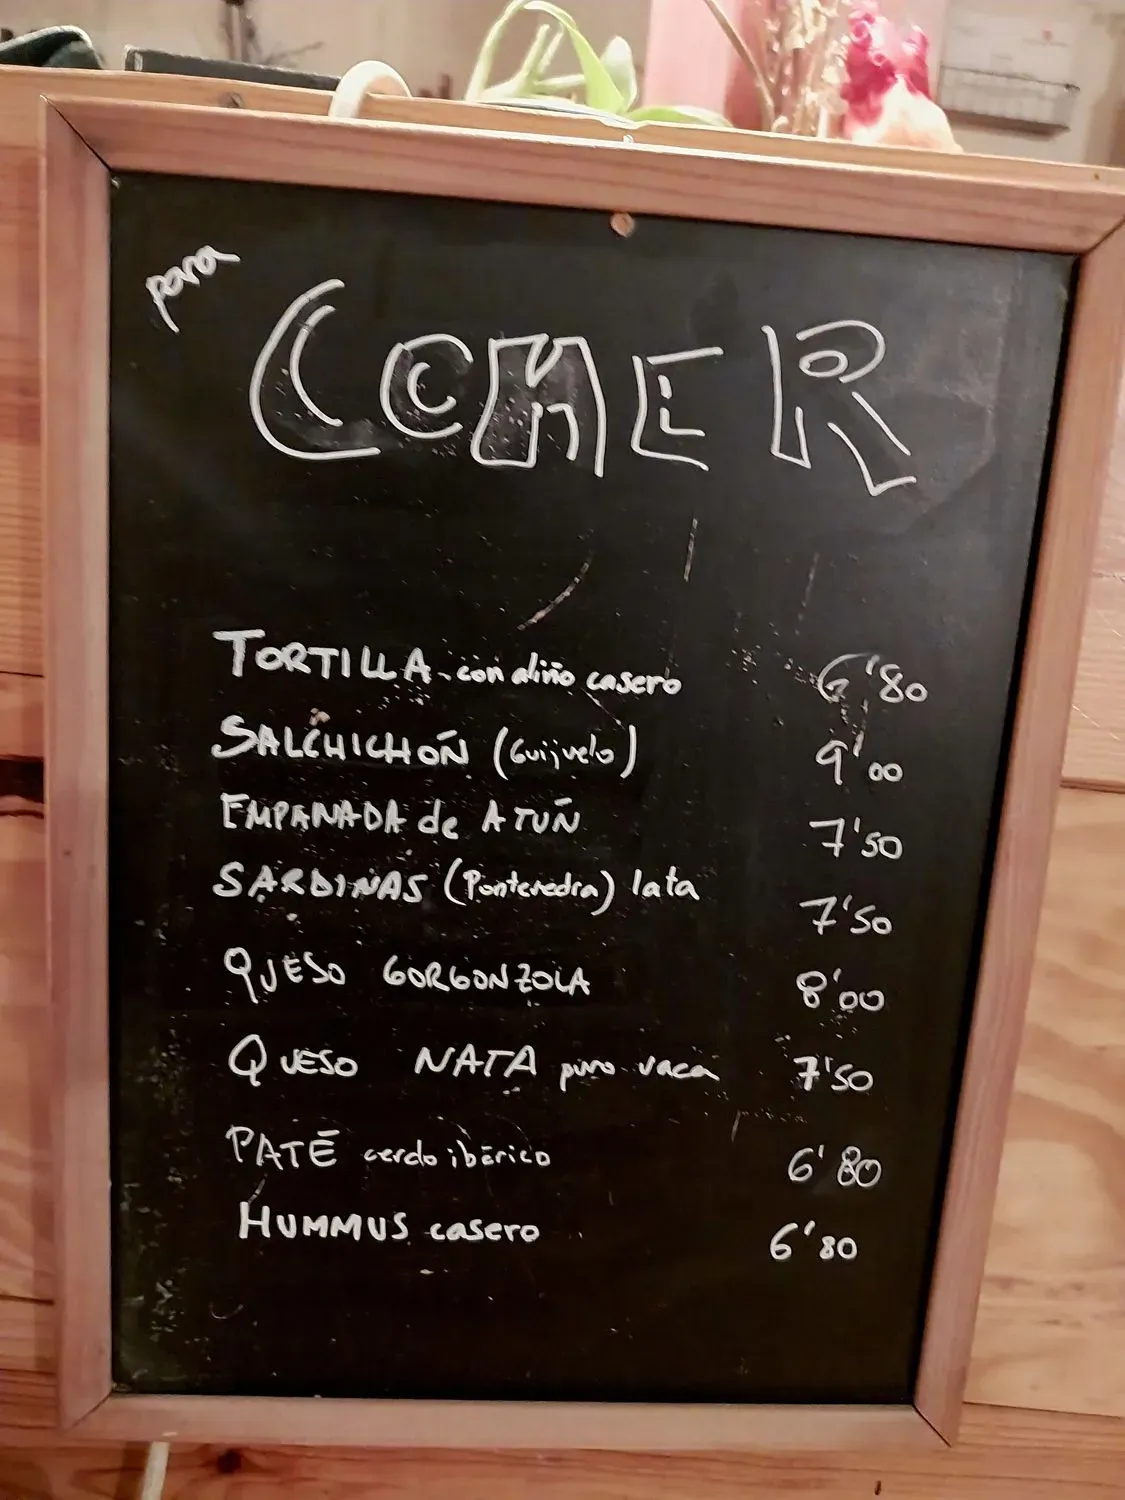 para
COMER
TORTILLA con aliño casero 6'80
SALCHICHÓN (Guijuelo) 9'00
EMPANADA de ATÚN 7'50
SARDINAS (Pontevedra) lata 7'50
QUESO GORGONZOLA 8'00
QUESO NATA puro vaca 7'50
PATÉ cerdo ibérico 6'80
HUMMUS casero 6'80